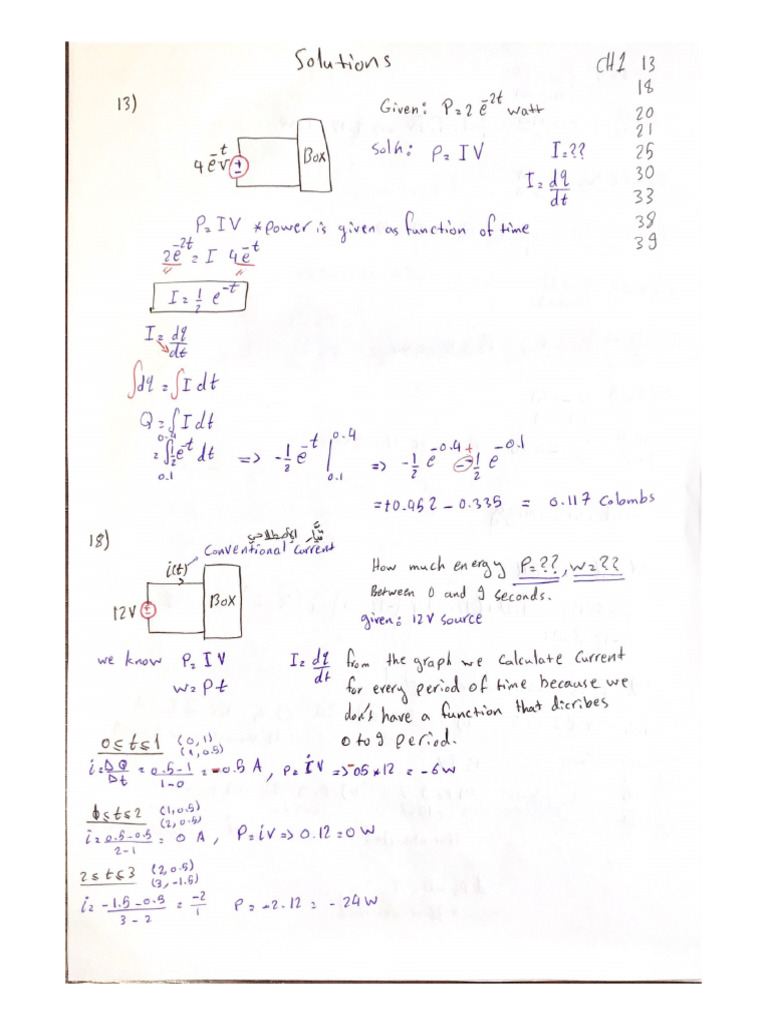 Solutions
CH1 13
18
20
21
25
30
33
38
39
13)
Given: P=2 e^-2t watt
4e^-t V
Box
Soln: P=IV I=??
I=dq/dt
P=IV *power is given as function of time
2e^-2t = I 4e^-t
I=1/2 e^-t
I=dq/dt
∫dq = ∫I dt
Q=∫I dt
=∫_0.1^0.4 1/2 e^-t dt => -1/2 e^-t |_0.1^0.4 => -1/2 e^-0.4 + - -1/2 e^-0.1
=+0.452-0.335 = 0.117 Colombs
18)
Conventional Current
i(t)
Box
12V
How much energy P=??, w=??
Between 0 and 9 seconds.
given: 12V source
we know P=IV I=dq/dt
w=Pt
from the graph we Calculate Current
for every period of time because we
don't have a function that dicribes
0 to 9 period.
0≤t≤1 (0,1)
(1,0.5)
i=ΔQ/Δt = 0.5-1/1-0 = -0.5 A, P=iV => -05*12 = -6w
1≤t≤2 (1,0.5)
(2,0.5)
i=0.5-0.5/2-1 = 0 A, P=iV => 0.12=0 W
2≤t≤3 (2,0.5)
(3,-1.5)
i=-1.5-0.5/3-2 = -2/1 P=-2.12= -24W